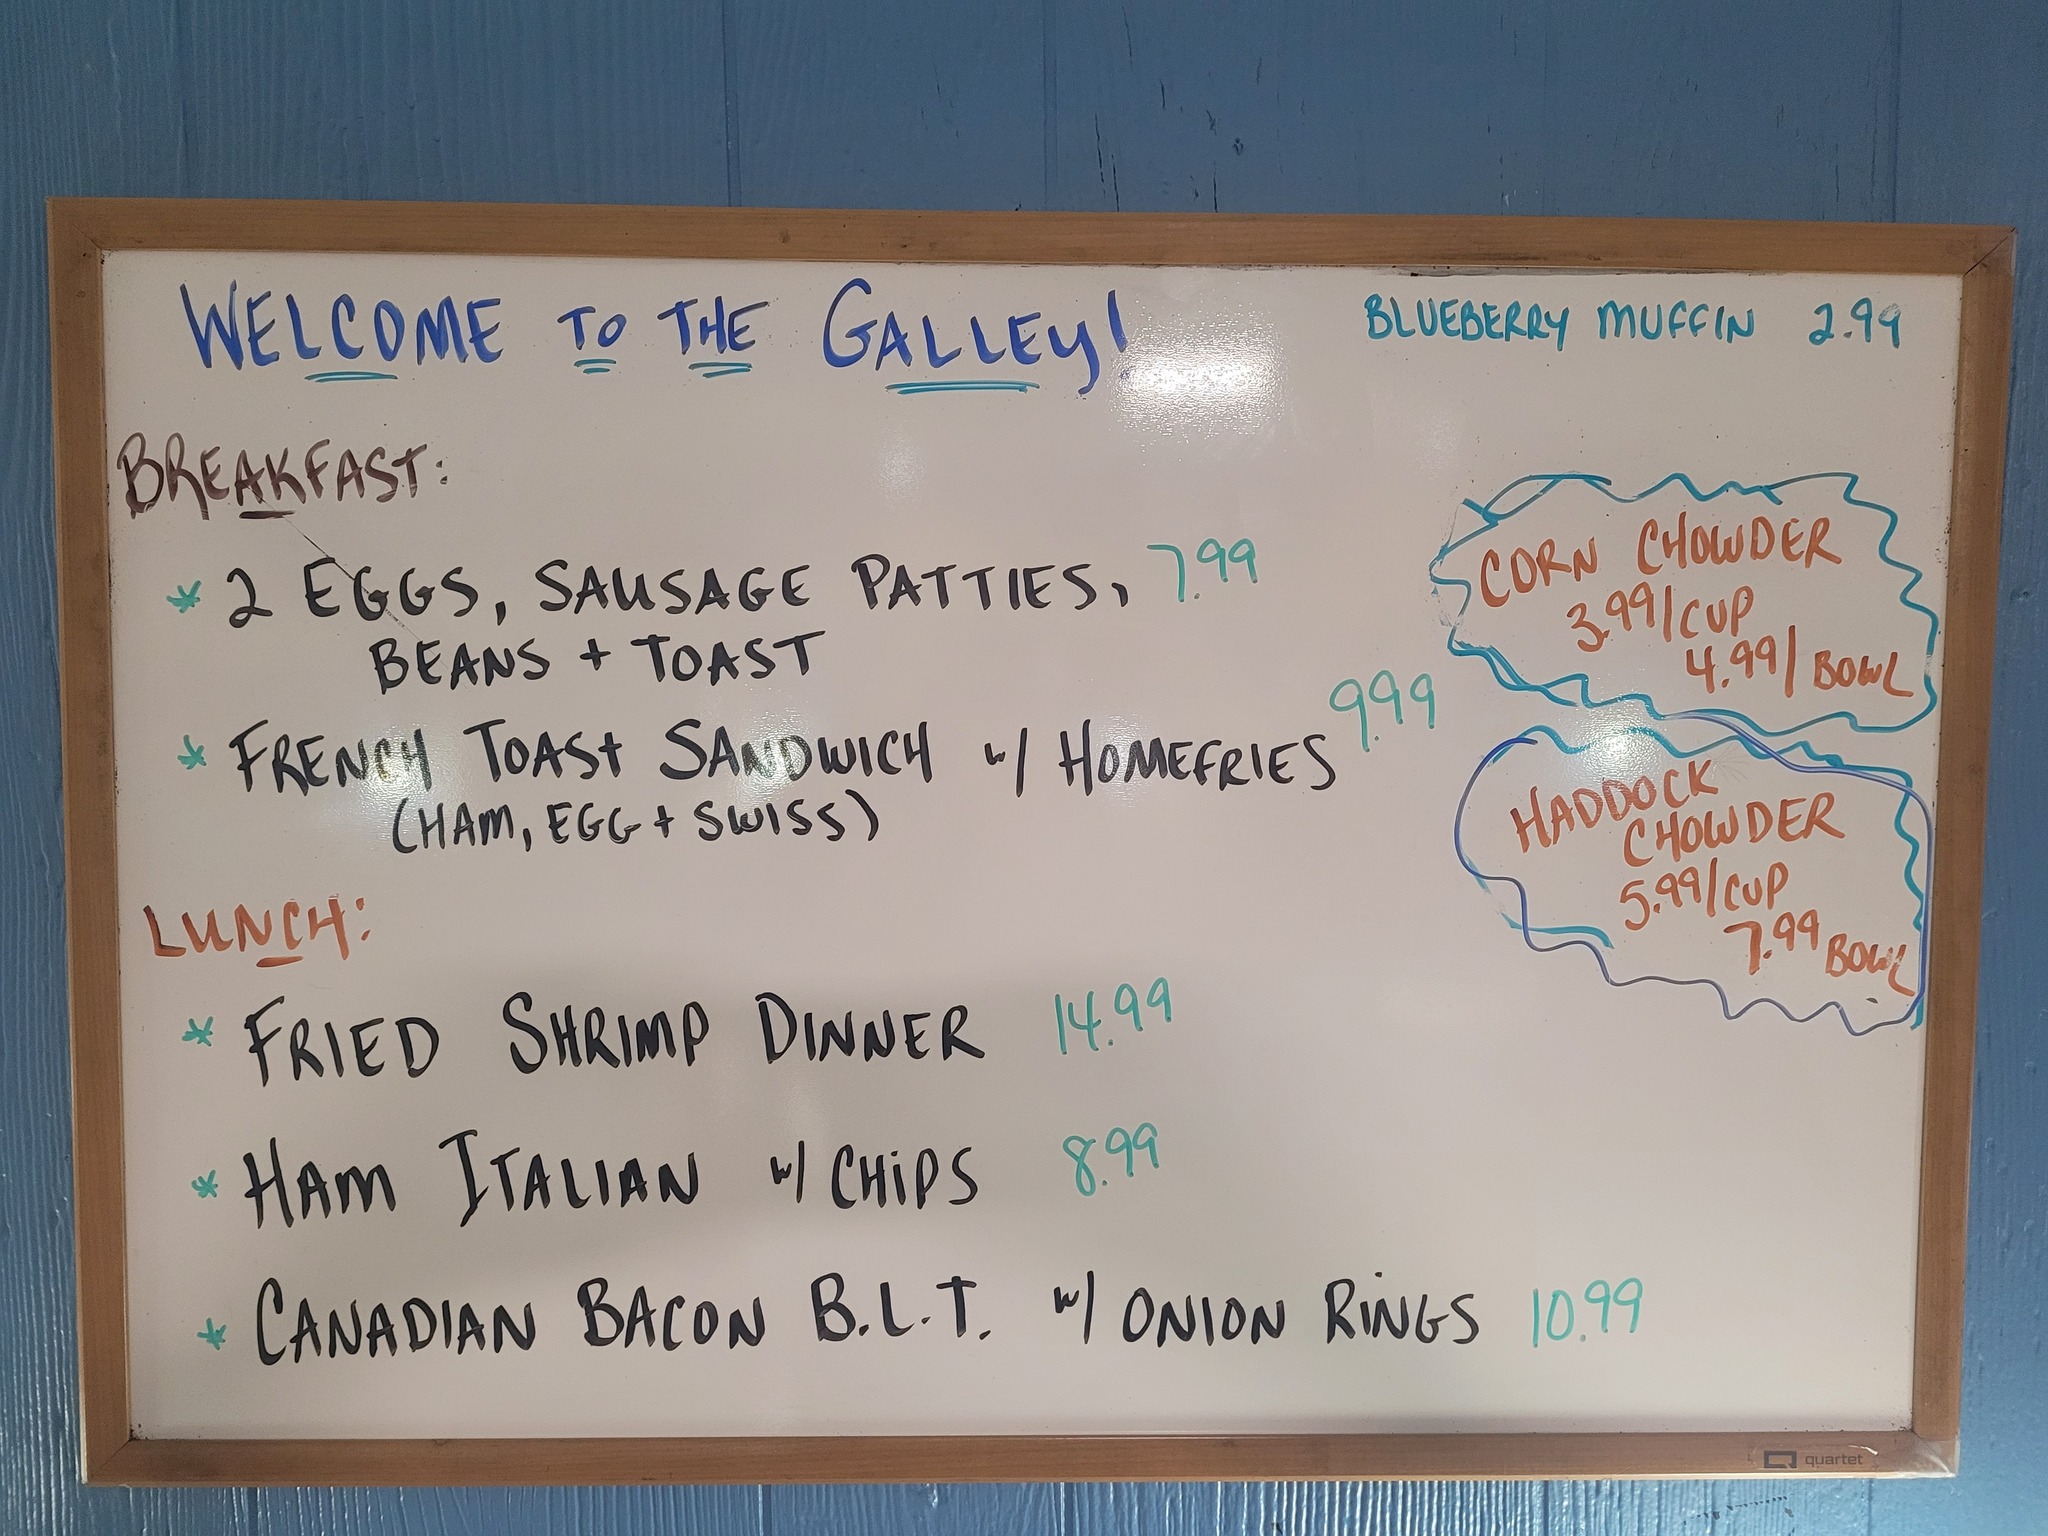 WELCOME TO THE GALLEY!
BLUEBERRY MUFFIN 2.99
BREAKFAST:
* 2 EGGS, SAUSAGE PATTIES, 7.99
BEANS + TOAST
* FRENCH TOAST SANDWICH w/ HOMEFRIES 9.99
(HAM, EGG + SWISS)
LUNCH:
* FRIED SHRIMP DINNER 14.99
* HAM ITALIAN w/ CHIPS 8.99
* CANADIAN BACON B.L.T. w/ ONION RINGS 10.99
CORN CHOWDER
3.99/CUP
4.99/BOWL
HADDOCK
CHOWDER
5.99/CUP
7.99 BOWL
quartet